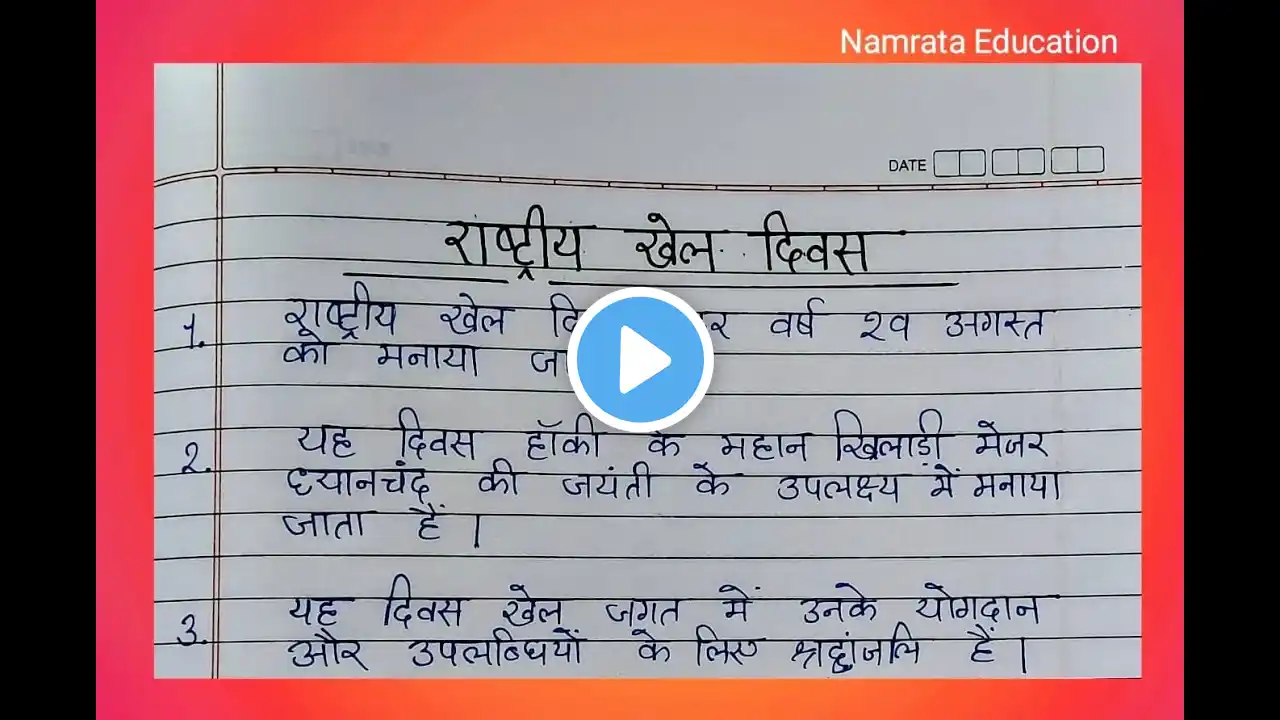 Namrata Education
DATE
राष्ट्रीय खेल दिवस
1. राष्ट्रीय खेल वर्ष २९ अगस्त
को मनाया
2. यह दिवस हॉकी के महान खिलाड़ी मेजर
ध्यानचंद की जयंती के उपलक्ष्य में मनाया
जाता हैं।
3. यह दिवस खेल जगत में उनके योगदान
और उपलब्धियों के लिए श्रद्धांजलि हैं।